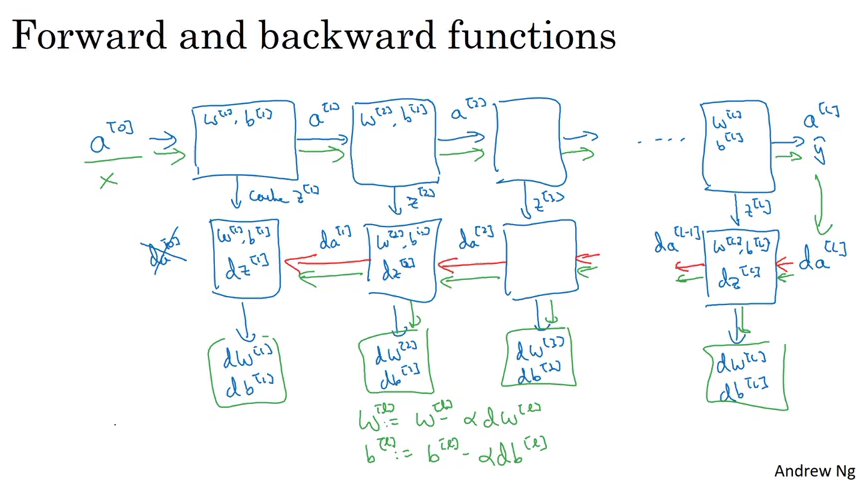 Forward and backward functions
a^[0] x
w^[1], b^[1]
a^[1]
w^[2], b^[2]
a^[2]
....
w^[L]
b^[L]
a^[L]
ŷ
cache z^[1]
z^[2]
z^[3]
z^[L]
da^[0]
w^[1], b^[1]
dz^[1]
da^[1]
w^[2], b^[2]
dz^[2]
da^[2]
da^[L-1]
w^[L], b^[L]
dz^[L]
da^[L]
dw^[1]
db^[1]
dw^[2]
db^[2]
dw^[3]
db^[3]
dw^[L]
db^[L]
w^[l] := w^[l] - αdw^[l]
b^[l] := b^[l] - αdb^[l]
Andrew Ng